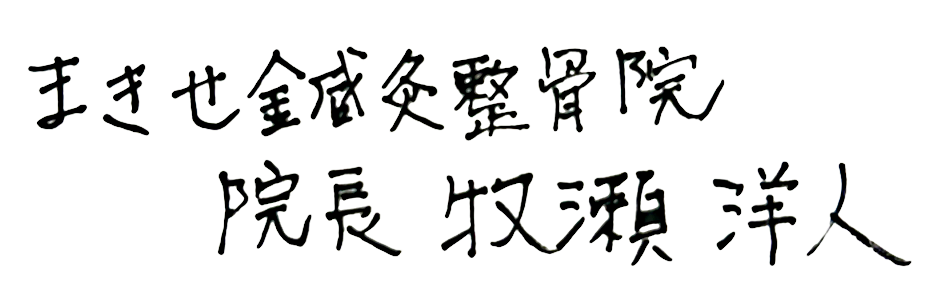 まきせ鍼灸整骨院
院長 牧瀬 洋人